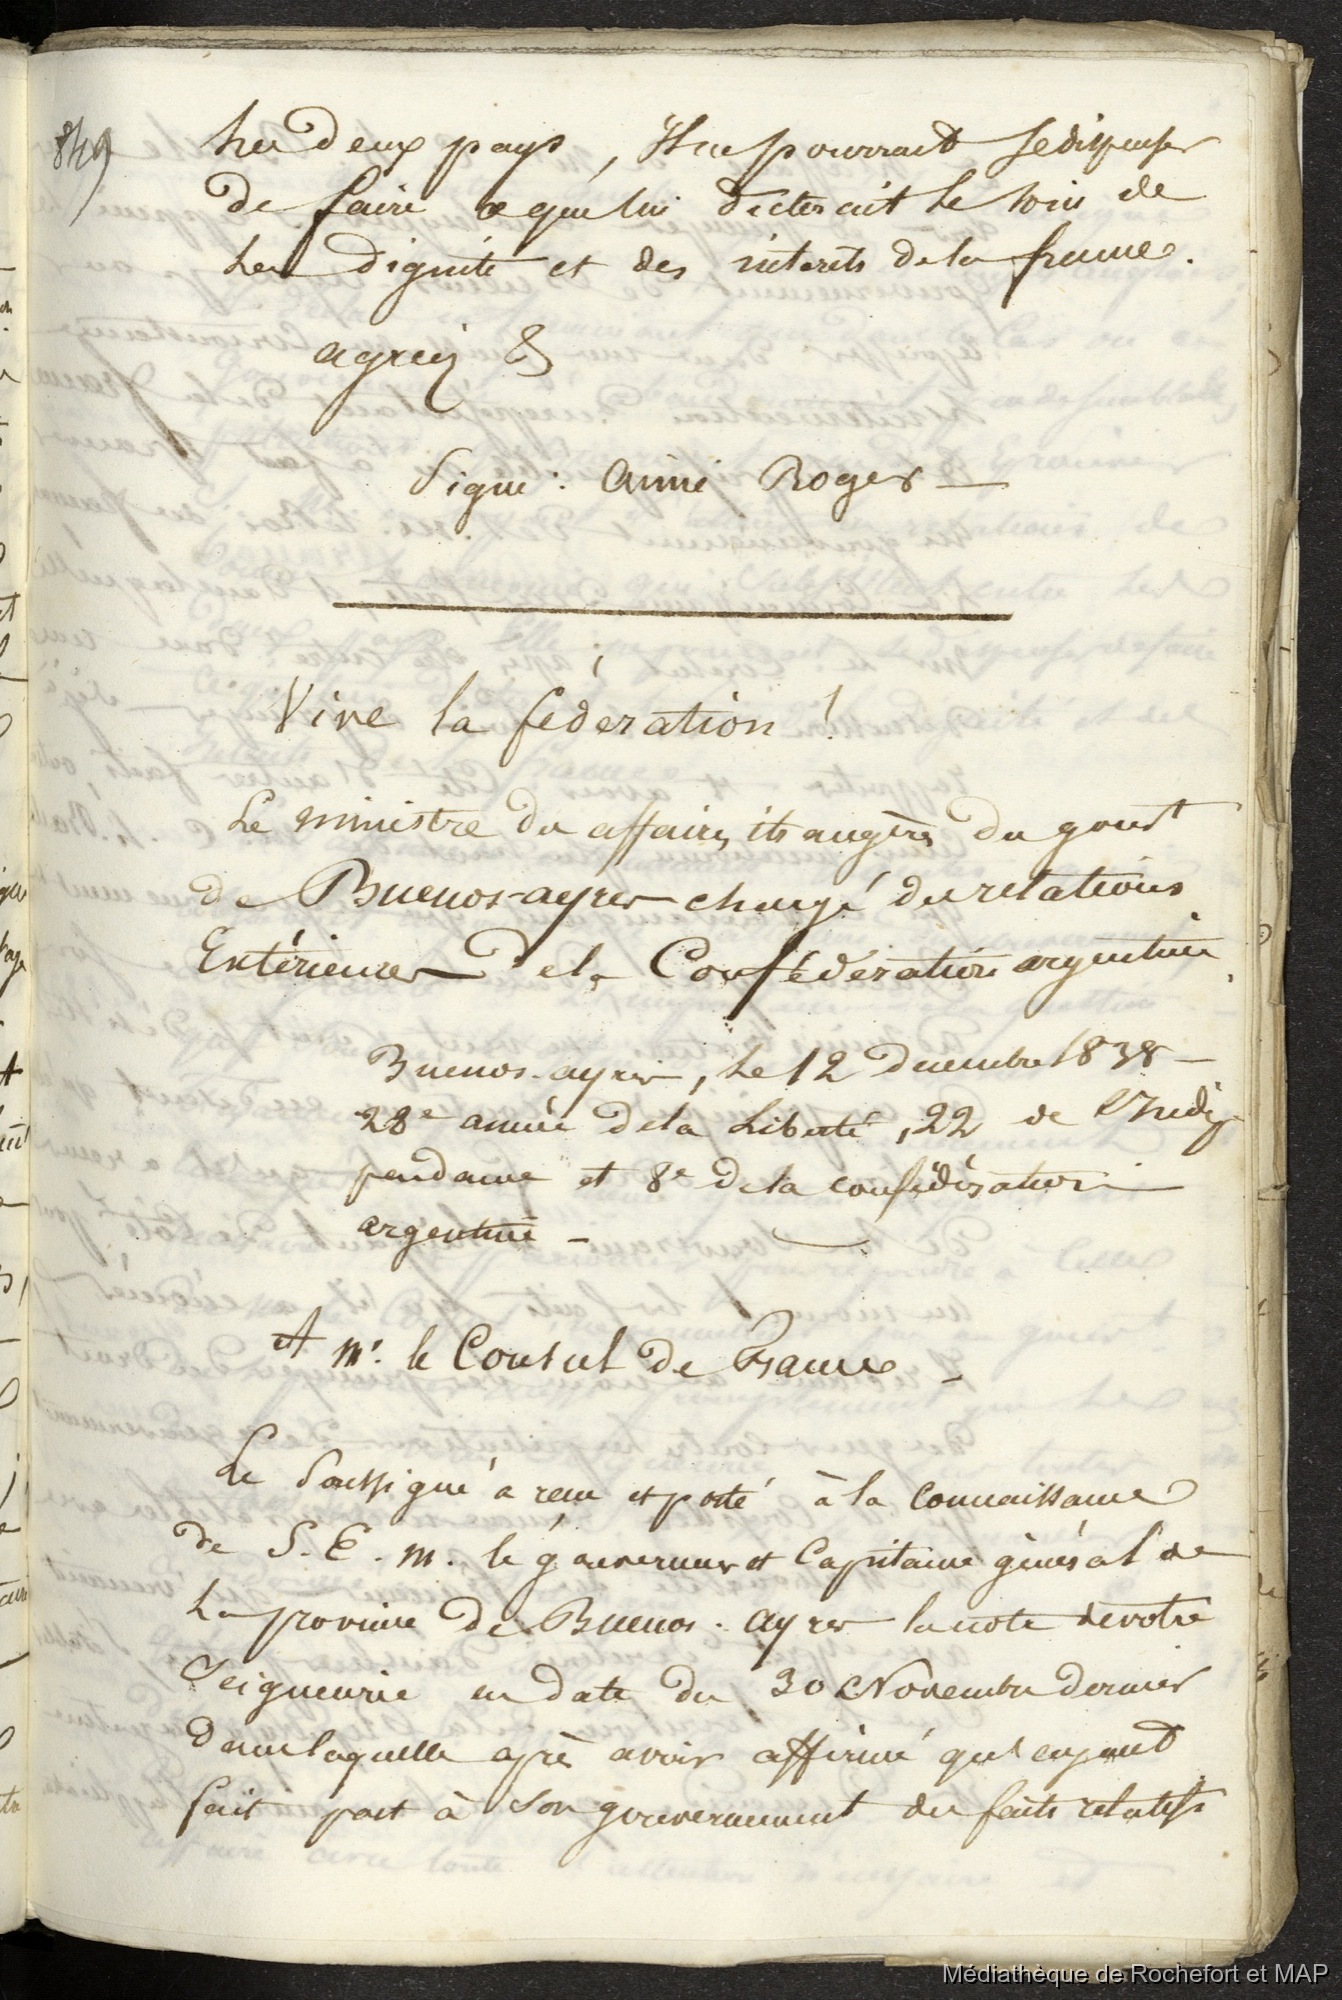 849
les deux pays, Il ne pourrait se dispenser
de faire ce que lui dicterait le soin de
la dignité et des intérêts de la france.
agréez &
Signé : Aimé Roger
Vive la fédération !
Le ministre des affaires étrangères du gouvt
de Buenos-ayres chargé des relations
Extérieures de la Confédération argentine.
Buenos-ayres, le 12 decembre 1838 -
28e année de la liberté, 22 de l'Indé
pendance et 8e de la confédération
argentine -
A Mr. le Consul de France -
Le Soussigné a recu et porté à la connaissance
de S. E. M. le gouverneur et Capitaine général de
la province de Buenos-ayres la note de votre
Seigneurie en date du 30 Novembre dernier
dans laquelle après avoir affirmé qu'en ayant
fait part à son gouvernement des faits relatifs
Médiathèque de Rochefort et MAP